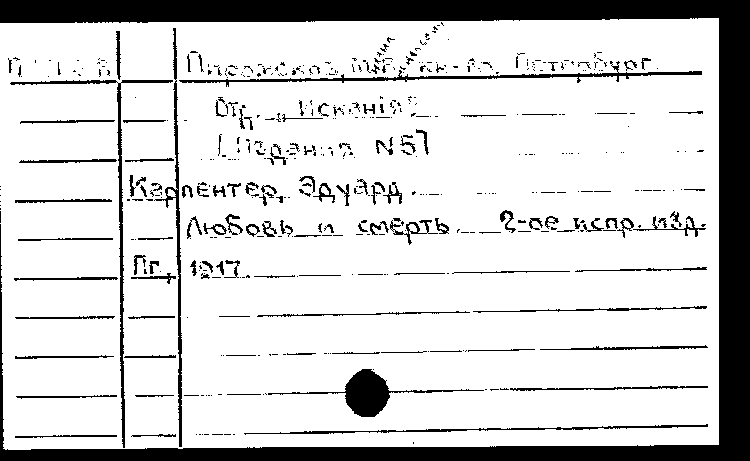 Пирожков, М.В., кн-во, Петербург.
Отд. „Исканія"
Изданія N 57
Карпентер, Эдуард.
Любовь и смерть. 2-ое испр. изд.
Пг., 1917.